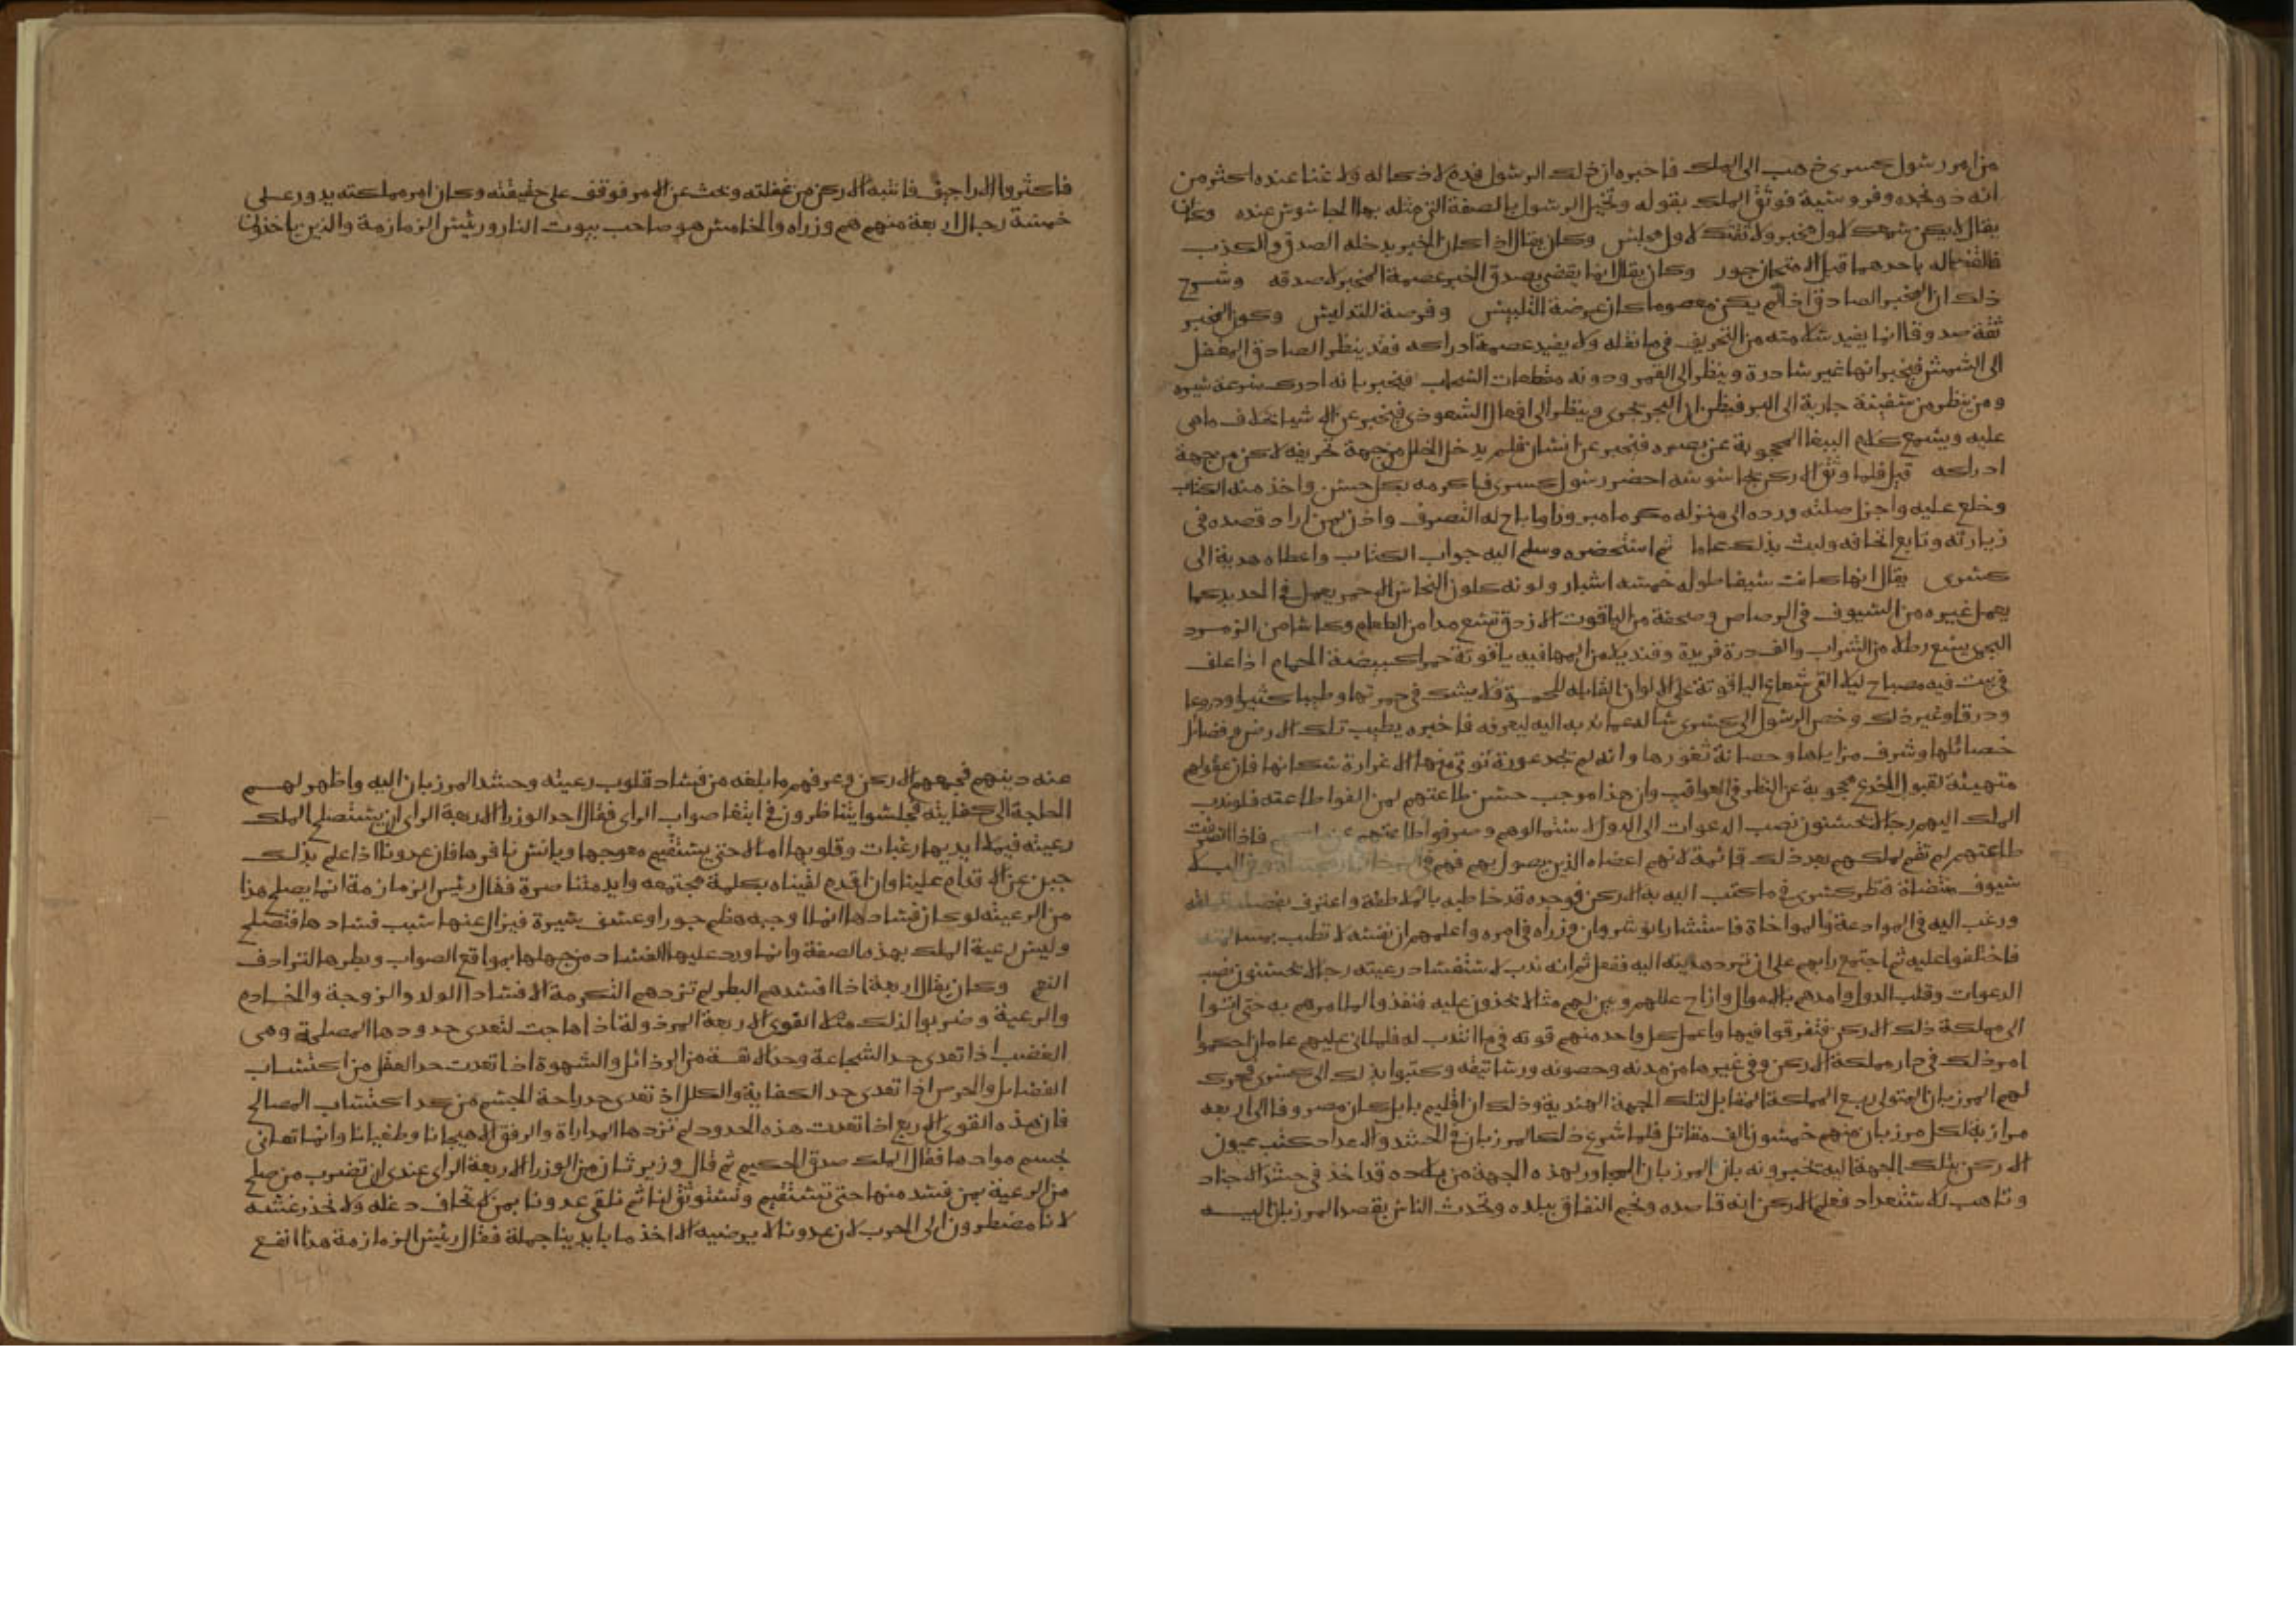 من امر رسول كسرى ذهب الى الملك فاخبره ان ذلك الرسول فدم لا ذكا له ولا غنا عنده اكثر من
انه ذو نجده وفروسية فوثق الملك بقوله وتخيل الرسول بالصفة التي مثله بها الجاسوس عنده وكان
يقال لا يكن سمعك لاول مخبر ولا ثقتك لاول مجلس وكان يقال اذا كان الخبر يدخله الصدق والكذب
فالقضا له باحدهما قبل الامتحان جور وكان يقال انما يقضي بصدق الخبر عصمة المخبر لا صدقه وشرح
ذلك ان المخبر الصادق اذا لم يكن معصوما كان عرضة للتلبيس وفرصة للتدليس وكون المخبر
ثقة صدوقا انما يفيد سلامته من التحريف في ما نقله ولا يفيد عصمة ادراكه فقد ينظر الصادق المغفل
الى الشمس فيخبر انها غير سادرة وينظر الى القمر ودونه متقطعات السحاب فيخبر بانه ادرك سرعة سيره
ومن ينظر من سفينة جارية الى البر فيظن ان البحر تجرى وينظر الى افعال الشعوذي فيخبر عن الاشيا بخلاف ما هي
عليه ويسمع كلام الببغا المحجوبة عن بصره فيخبر عن انسان فلم يدخل الخلل من جهة تحريفه لاكن من جهة
ادراكه قيل فلما وثق الاركن بجاسوسه احضر رسول كسرى فاكرمه بكل حسن واخذ منه الكتاب
وخلع عليه واجزل صلته ورده الى منزله مكرما مبرورا واباح له التصرف واذن لمن اراد قصده في
زيارته وتابع اتحافه ولبث بذلك عاما ثم استحضره وسلم اليه جواب الكتاب واعطاه هدية الى
كسرى يقال انها كانت سيفا طوله خمسه اشبار ولونه كلون النحاس الاحمر يعمل في الحديد كما
يعمل غيره من السيوف في الرصاص وصحفة من الياقوت الازرق تسع مدا من الطعام وكاسا من الزمرد
البحرى يسع رطلا من الشراب والف درة فريدة وقنديلا من المها فيه ياقوتة حمرا كبيضة الحمام اذا علق
في بيت فيه مصباح ليلا القى شعاع الياقوتة على الالوان القابله للحمرة فلا يشك في حمرتها وطيبا كثيرا ودروعا
ودرقا وغير ذلك وخص الرسول الى كسرى سا له عما ندبه اليه ليعرفه فاخبره بطيب تلك الارض وفضائل
خصائلها وشرف مزاياها وحصانة ثغورها وانه لم يجد عورة تؤتى منها الا غرارة سكانها فان عقولهم
متهيئة لقبول الخدع محجوبة عن النظر في العواقب وان هذا موجب حسن طاعتهم لمن الفوا طاعته فلو ندب
الملك اليهم رجالا يحسنون نصب الدعوات الى الدول لاستمالوهم وصرفوا طاعتهم عن فاذا انصرفت
طاعتهم لم تقم لملكهم بعد ذلك قائمة لانهم اعضاه الذين يصول بهم فهم في البلا
سيوف منتضاة فنظر كسرى في ما كتب اليه به الاركن فوجده قد خاطبه بالملاطفة واعترف بفضله
ورغب اليه في الموادعة والمواخاة فاستشار انوشروان وزراه في امره واعلمهم ان نفسه لا تطيب
فاختلفوا عليه ثم اجتمع رايهم على ان ترد هديته اليه ففعل ثم انه ندب لاستفساد رعيته رجالا يحسنون نصب
الدعوات وقلب الدول وامدهم بالاموال وازاح عللهم وبين لهم مثالا يحذون عليه فنفذوا لما امرهم به حتى اتوا
الى مملكة ذلك الاركن فتفرقوا فيها واعمل كل واحد منهم قوته في ما انتدب له فلما اتى عليهم عامان احكموا
امر ذلك في دار مملكة الاركن وفي غيرها من مدنه وحصونه ورساتيقه وكتبوا بذلك الى كسرى فحرك
لهم المرزبان المتولى ربع المملكة المقابل لتلك الجهة الهندية وذلك ان اقليم بابل كان مصروفا الى اربعه
مرازبة لكل مرزبان منهم خمسون الف مقاتل فلما شرع ذلك المرزبان في الحشد والاعداد كتب عيون
الاركن بتلك الجهة اليه يخبرونه بان المرزبان المجاور لهذه الجهة من بلاده قد اخذ في حشر الاجناد
وتاهب للاستعداد فعلم الاركن انه قاصده ونجم النفاق ببلده وتحدث الناس بقصد المرزبان اليه
فاكثروا الاراجيف فانتبه الاركن من غفلته وبحث عن الامر فوقف على حقيقته وكان امر مملكته يدور على
خمسة رجال اربعة منهم هم وزراه والخامس هو صاحب بيوت النار ورئيس الزمازمة والذين ياخذون
عنه دينهم فجمعهم الاركن وعرفهم ما بلغه من فساد قلوب رعيته وحشد المرزبان اليه واظهر لهم
الحاجة الى كفايته فجلسوا يتناظرون في ابتغا صواب الراى فقال احد الوزرا الاربعة الراى ان يستصلح الملك
رعيته فيملا ايديها رغبات وقلوبها امالا حتى يستقيم معوجها ويانس نافرها فان عدونا اذا علم بذلك
جبن عن الاقدام علينا وان اقدم لقيناه بكلمة مجتمعه وايد متناصرة فقال رئيس الزمازمة انما يصلح هذا
من الرعيته لو كان فسادها انما اوجبه هظم جور او عسف سيرة فيزال عنها سبب فسادها فتصلح
وليس رعية الملك بهذه الصفة وانما ورد عليها الفساد من جهلها بمواقع الصواب وبطرها لترادف
النعم وكان يقال اربعة اذا افسدهم البطر لم تزدهم التكرمة الا فسادا الولد والزوجة والخادم
والرعية وضربوا لذلك مثلا القوى الاربعة المرذولة اذا هاجت لتعدى حدودها المصلحة وهى
الغضب اذا تعدى حد الشجاعة وحد الانفة من الرذائل والشهوة اذا تعدت حد العقل من اكتساب
الفضائل والحرص اذا تعدى حد الكفاية والكلل اذ تعدى حد راحة الجسم من كد اكتساب المصالح
فان هذه القوى الاربع اذا تعدت هذه الحدود لم تزدها المداراة والرفق الا هيجانا وطغيانا وانما تعانى
بحسم موادها فقال الملك صدق الحكيم ثم قال وزير ثان من الوزرا الاربعة الراى عندى ان تضرب من صلح
من الرعية بمن فسد منها حتى تستقيم وتستوثق لنا ثم نلقى عدونا بمن لا نخاف دغله ولا نحذر غشه
لانا مضطرون الى الحرب لان عدونا لا يرضيه الا اخذ ما بايدينا جملة فقال رئيس الزمازمة هذا انفع